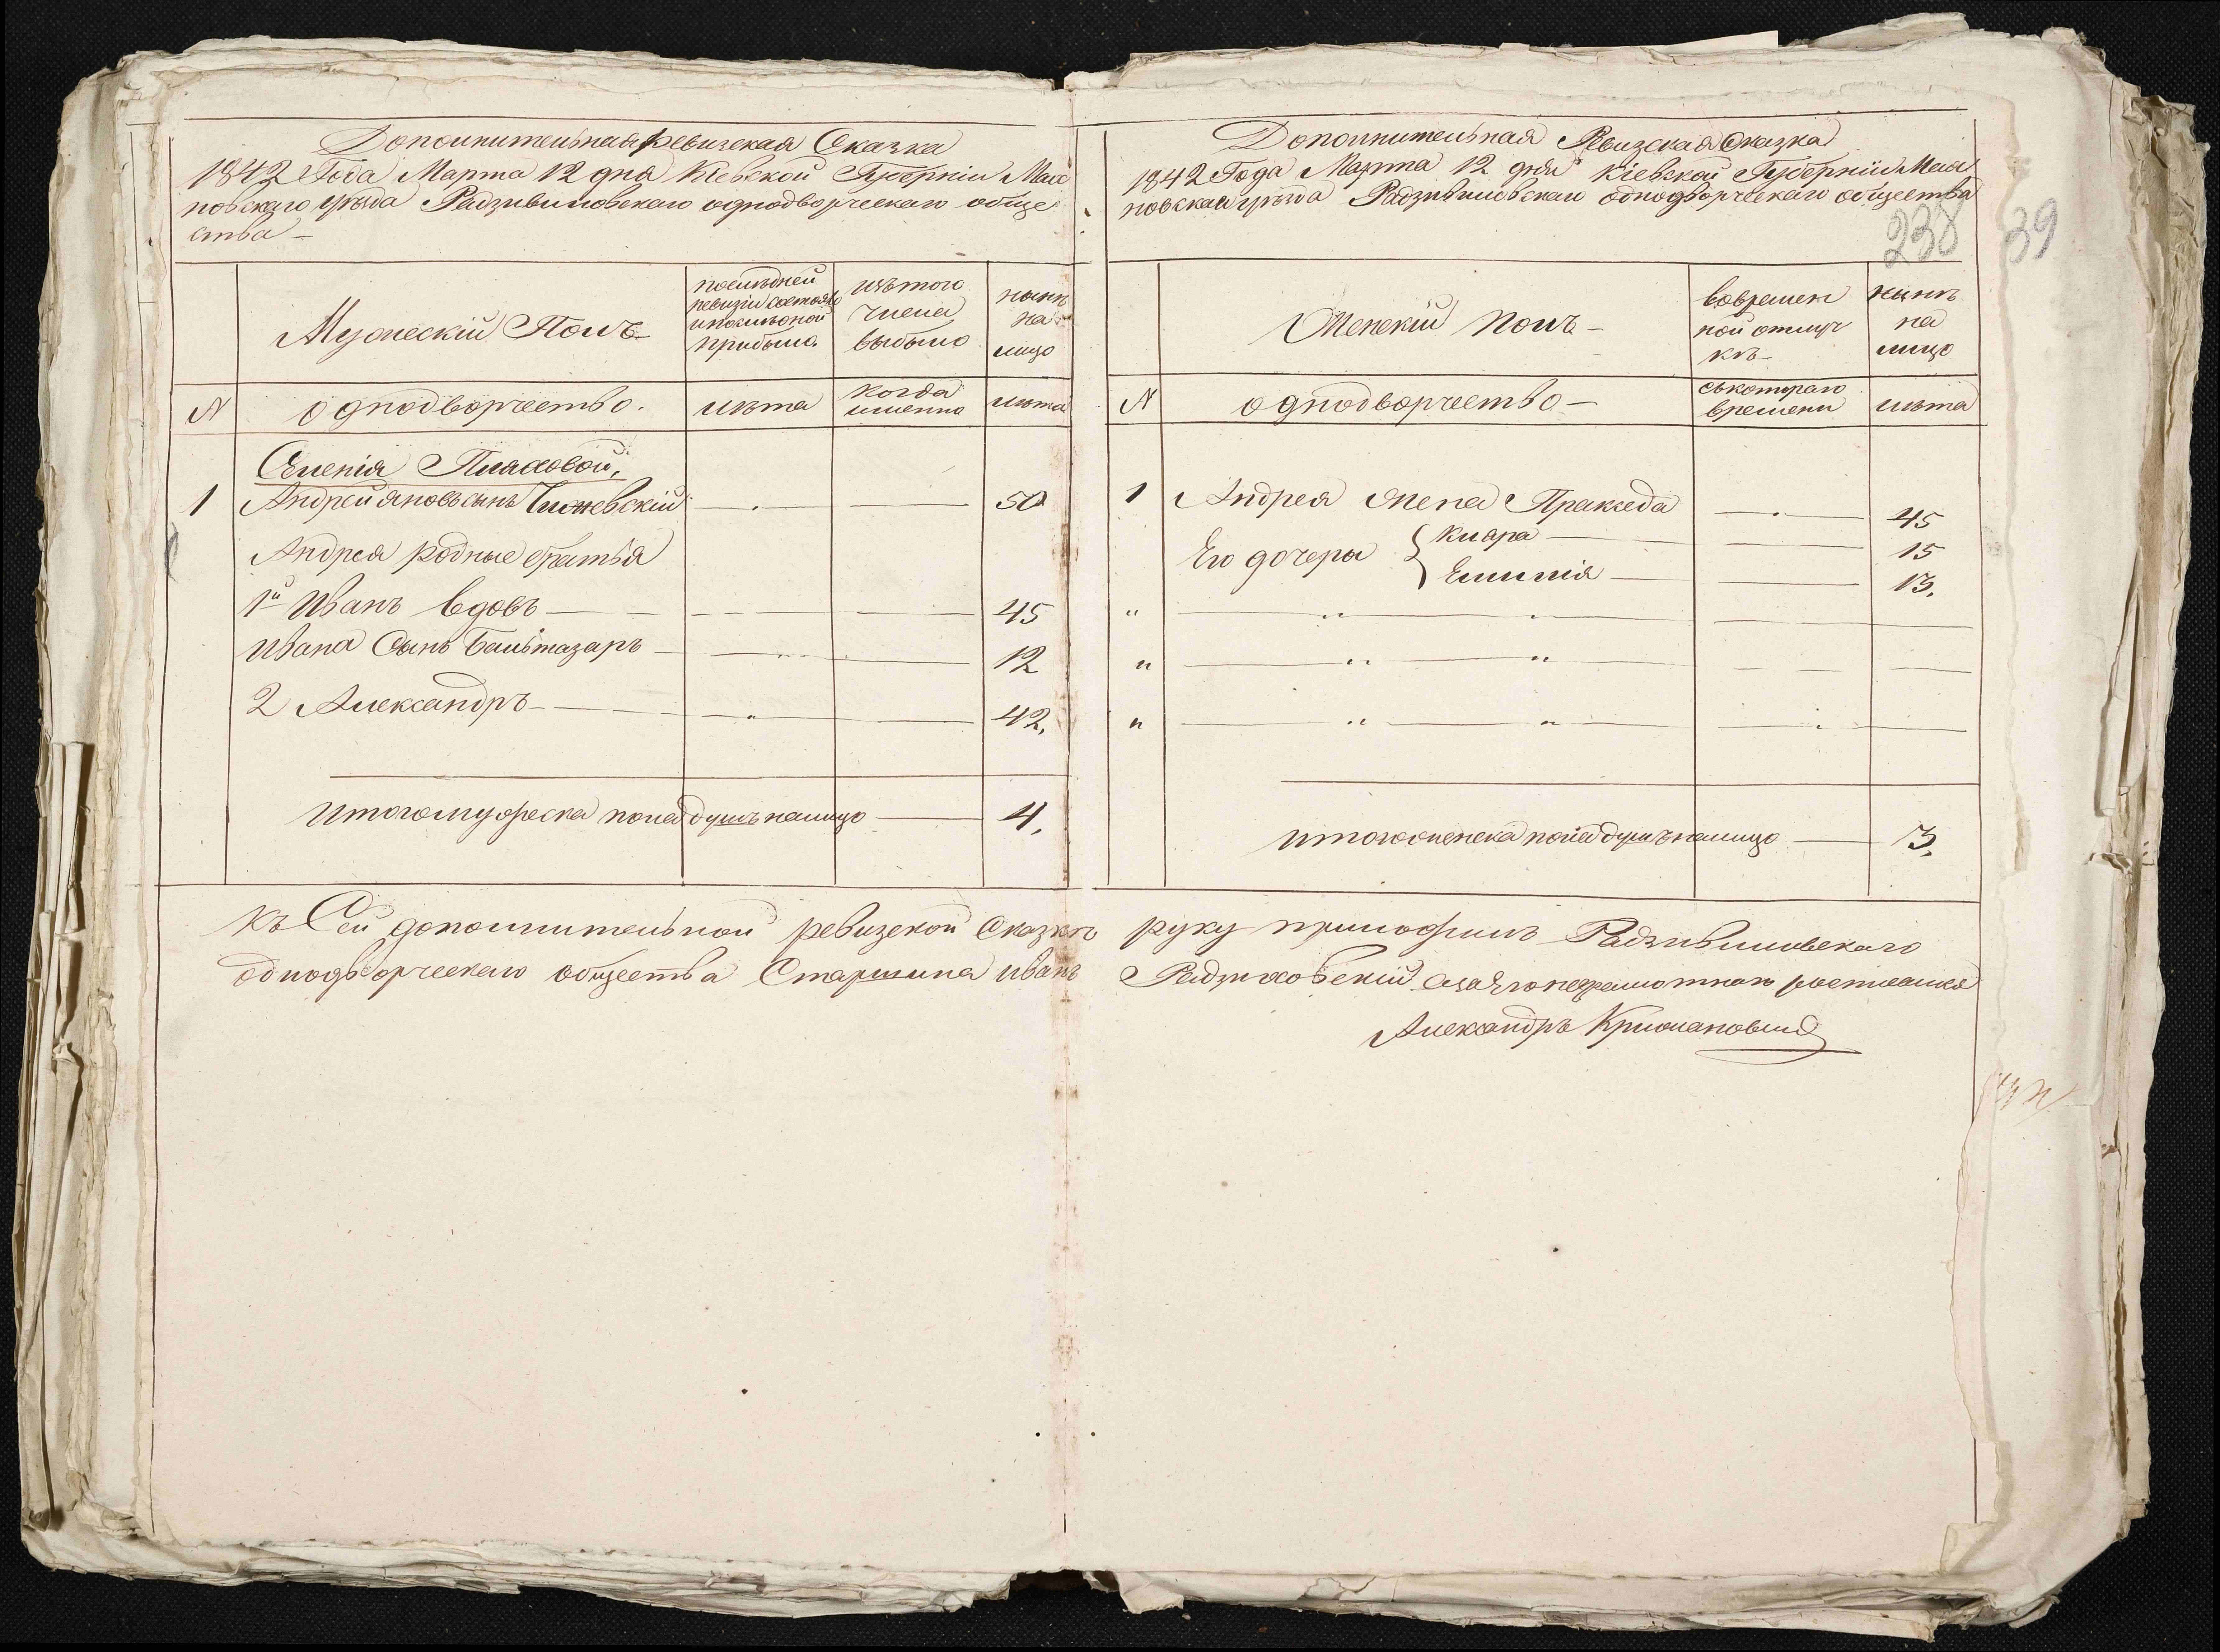 Дополнительная ревизская Сказка
1842 Года Марта 12 дня Кіевской Губерніи Мах
новскаго уѣзда Радзивиловскаго однодворческаго обще
ства –
Мужескій Полъ –
последней ревизіи состояло и после оной прибыло.
изъ того числа выбыло
нынѣ на лицо
N
однодворчество.
лѣта
когда именно
лѣта
Селенія Пляховой,
1 Андрей Яновъ сынъ Чижевскій 50
Андрея родные братья
1й Иванъ вдовъ 45
Ивана Сынъ Бальтазаръ 12
2 Александръ 42,
Итого мужеска пола душъ налицо 4,
Дополнительная Ревизская Сказка
1842 Года Марта 12 дня Кіевской Губерніи Мах
новскаго уѣзда Радзивиловскаго однодворческаго общества
238 39
Женскій полъ –
во временной отлучкѣ
нынѣ на лицо
N
однодворчество –
съ котораго времени
лѣта
1 Андрея жена Пракседа 45
Его дочеры Клара 15
Емилія 13.
Итого женска пола душъ налицо 3.
Къ Сей дополнительной ревизской Сказкѣ руку приложилъ Радзивиловскаго
однодворческаго общества Старшина Иванъ Радзиховскій а за его неграмотного росписался
Александръ